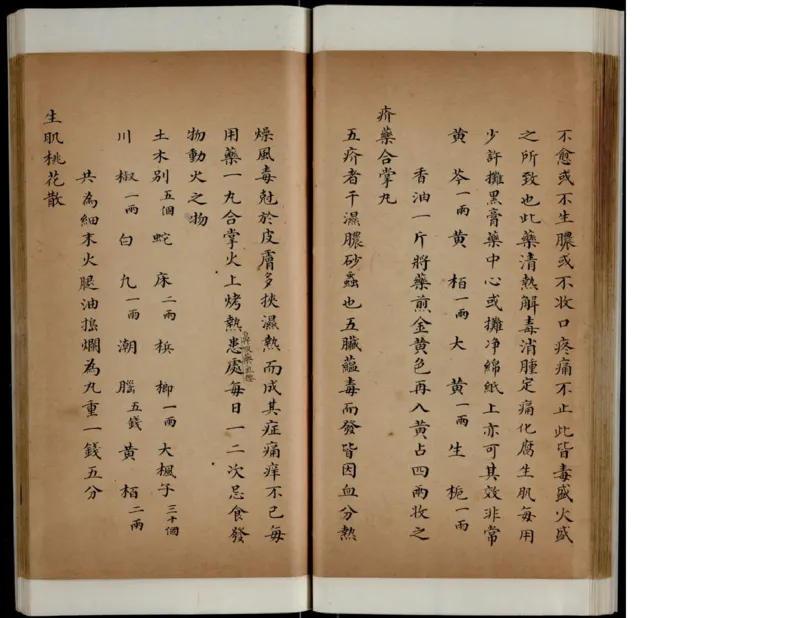 不愈或不生膿或不收口疼痛不止此皆毒盛火盛
之所致也此藥清熱解毒消腫定痛化腐生肌每用
少許攤黑膏藥中心或攤净綿紙上亦可其效非常
黄芩一兩黄栢一兩大黄一兩生栀一兩
香油一斤將藥煎金黄色再入黄占四兩收之
疥藥合掌丸
五疥者干濕膿砂蟲也五臟蘊毒而發皆因血分熱
燥風毒尅於皮膚多挾濕熱而成其症痛痒不已每
用藥一丸合掌火上烤熱患處每日一二次忌食發
物動火之物
土木别五個蛇床二兩梹榔一兩大楓子三十個
川椒一兩白九一兩潮腦五錢黄栢二兩
共為細末火腿油搗爛為丸重一錢五分
生肌桃花散